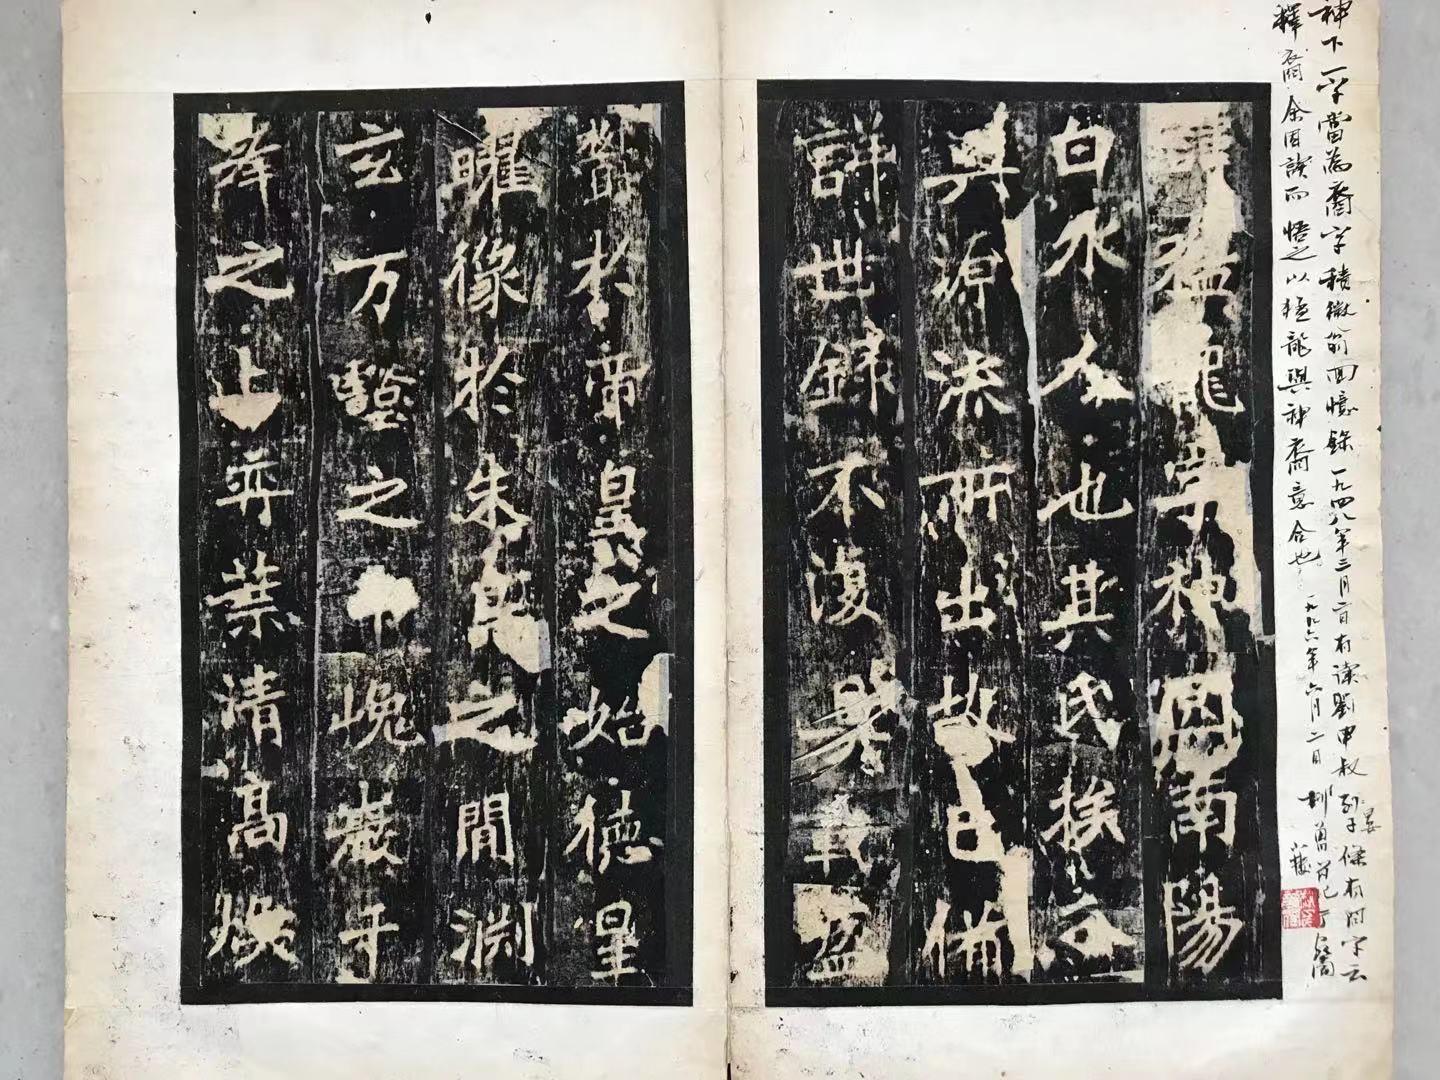 神下一字當為裔字積微翁回憶錄一九四八年三月二日有讀劉申叔列子條有冏字云
釋裔余因讀而悟之以猛龍與神裔意合也一九九六年六月二日
諱猛龍字神冏南陽
白水人也其氏族分
興源流所出故已備
詳世錄不復具載
蓄於帝皇之始德星
曜像於朱鳥之間淵
玄万壑之中巉巖千
峰之上弈葉清高煥